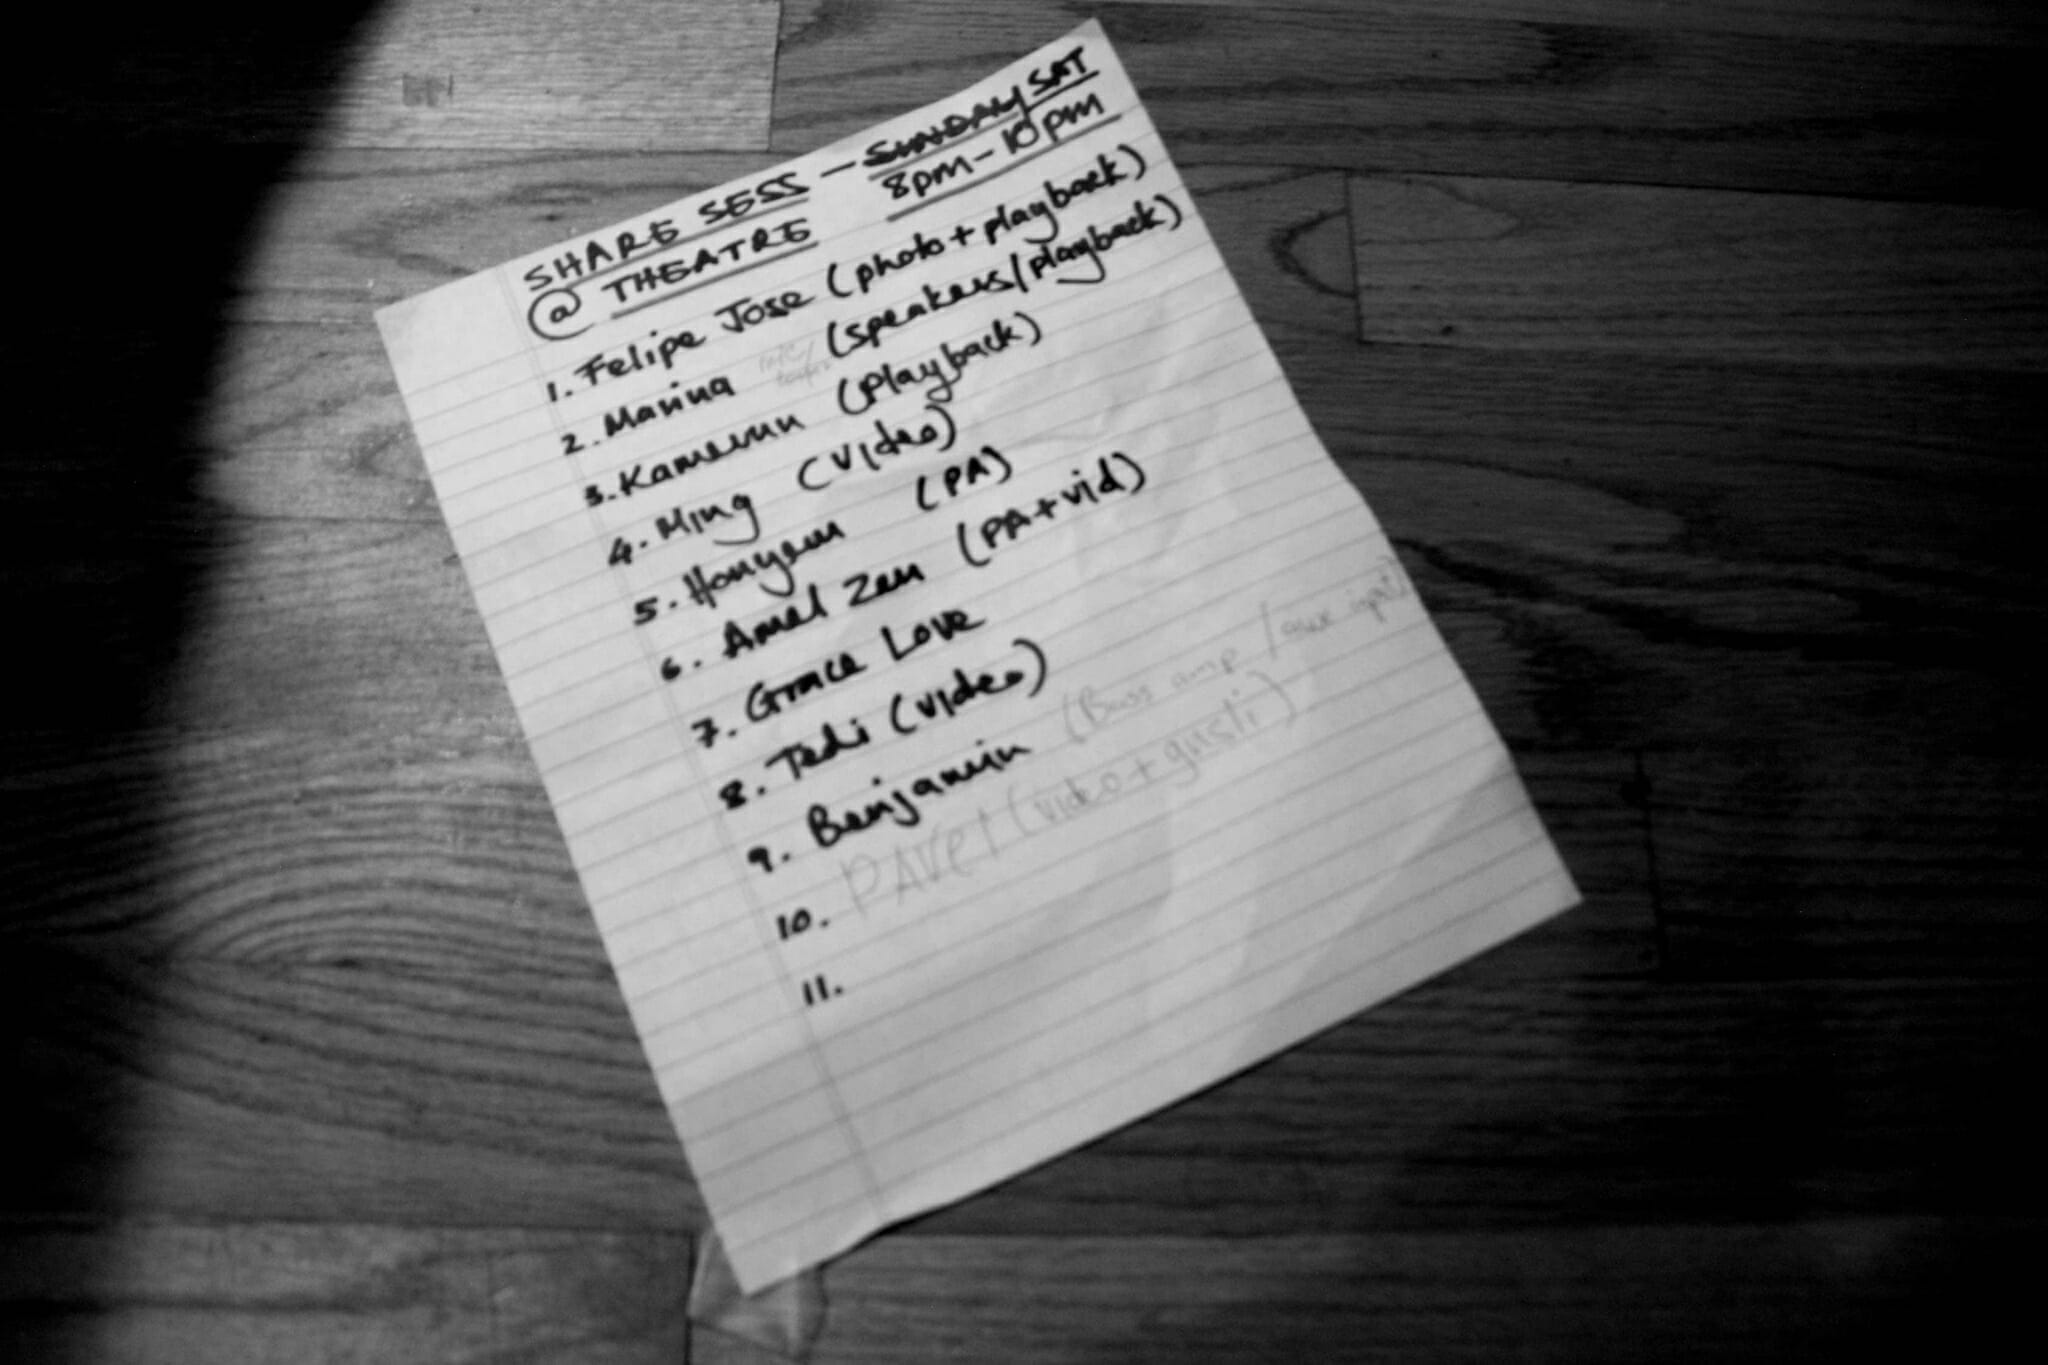 SHARE SESS - SUNDAY SAT
@ THEATRE 8pm-10pm
1. Felipe Jose (photo + playback)
2. Marina (speakers/playback)
3. Kamerun (Playback)
4. Ming (Video)
5. (PA)
6. Amel Zen (PA + vid)
7. Grace Love
8. Tedi (Video)
9. Benjamin (Bass amp / aux input)
10. PAVel (video +
11.